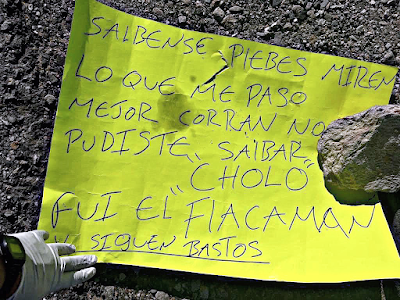 SALBENSE PLEBES MIREN
LO QUE ME PASO
MEJOR CORRAN NO
PUDISTE SALBAR
"CHOLO"
FUI EL FLACAMAN
SIGUEN BASTOS